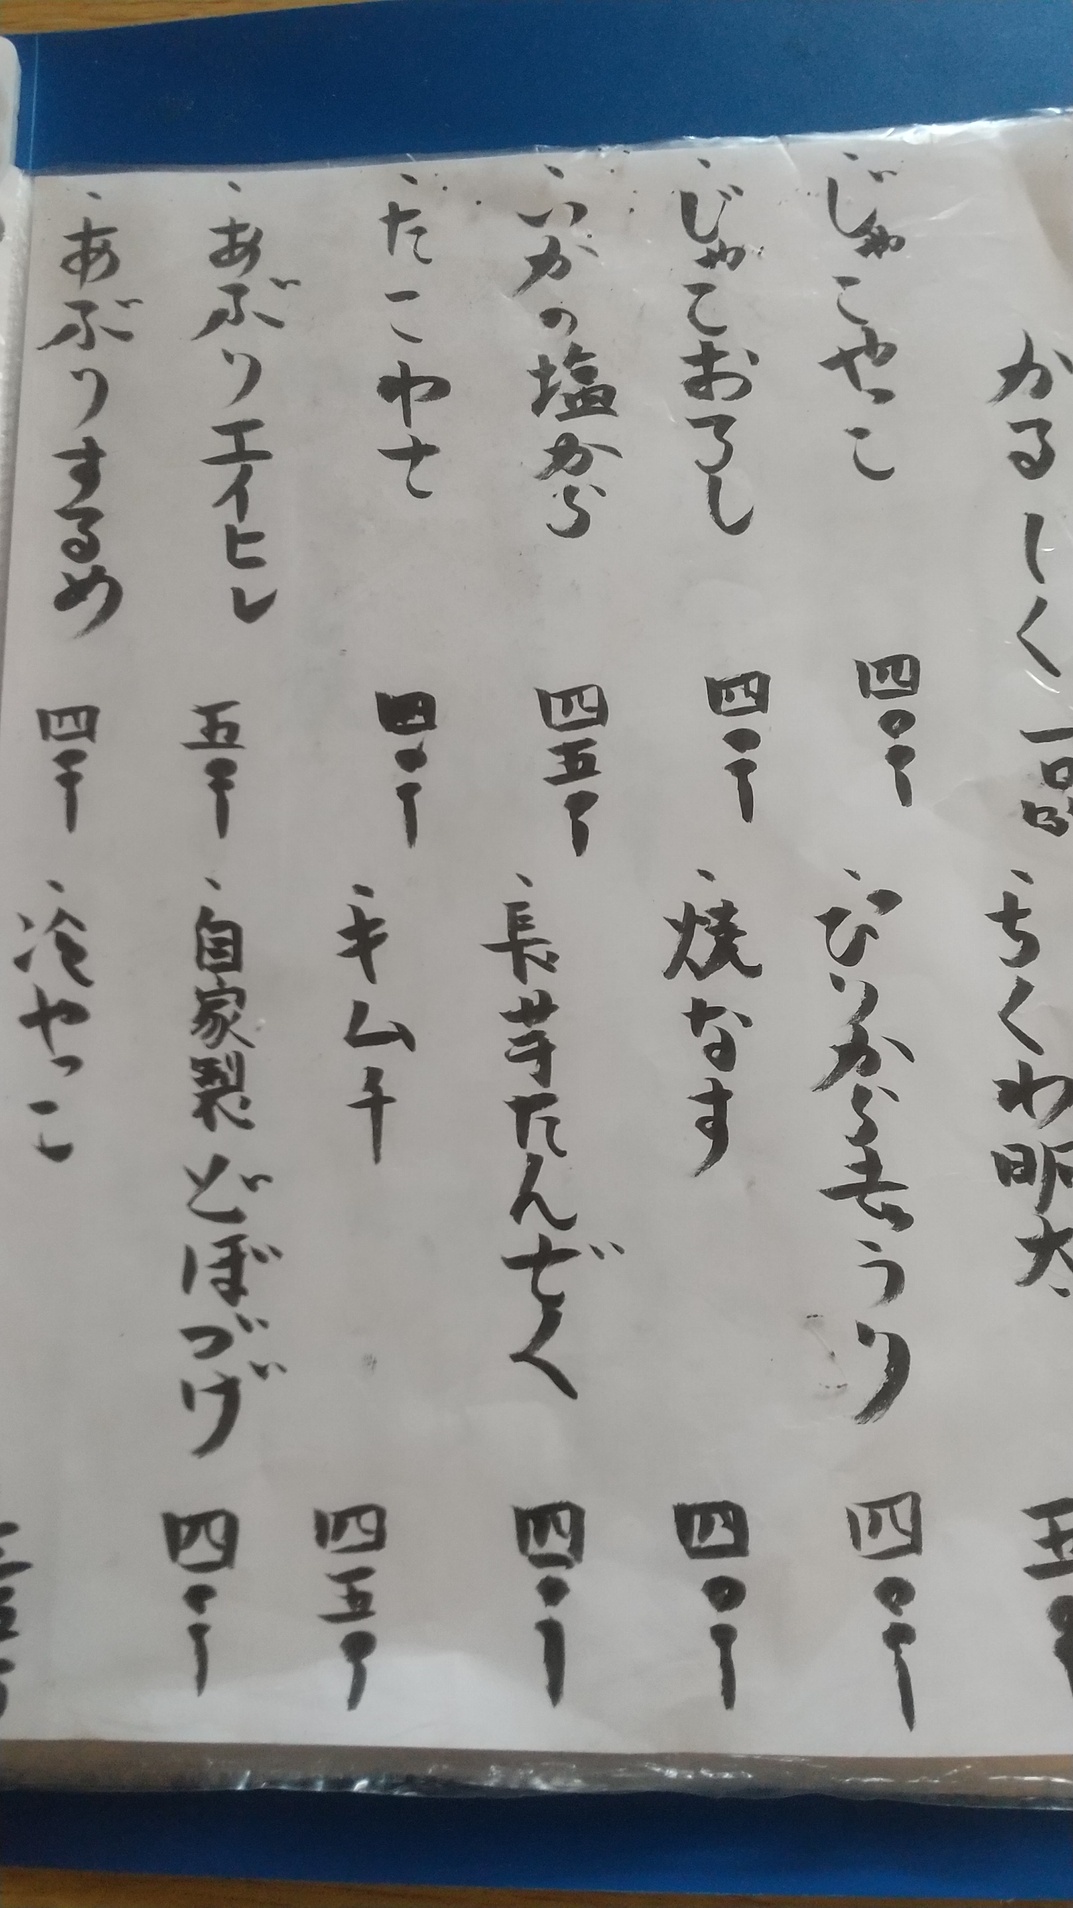 かるしく一品
、じゃこやっこ 四〇〇
、じゃこおろし 四〇〇
、いかの塩から 四五〇
、たこわさ 四〇〇
、あぶりエイヒレ 五〇〇
、あぶりするめ 四〇〇
、ちくわ明太 五〇
、ぴりからきうり 四〇〇
、焼なす 四〇〇
、長芋たんざく 四〇〇
、キムチ 四五〇
、自家製どぼづけ 四〇〇
、冷やっこ 三五〇